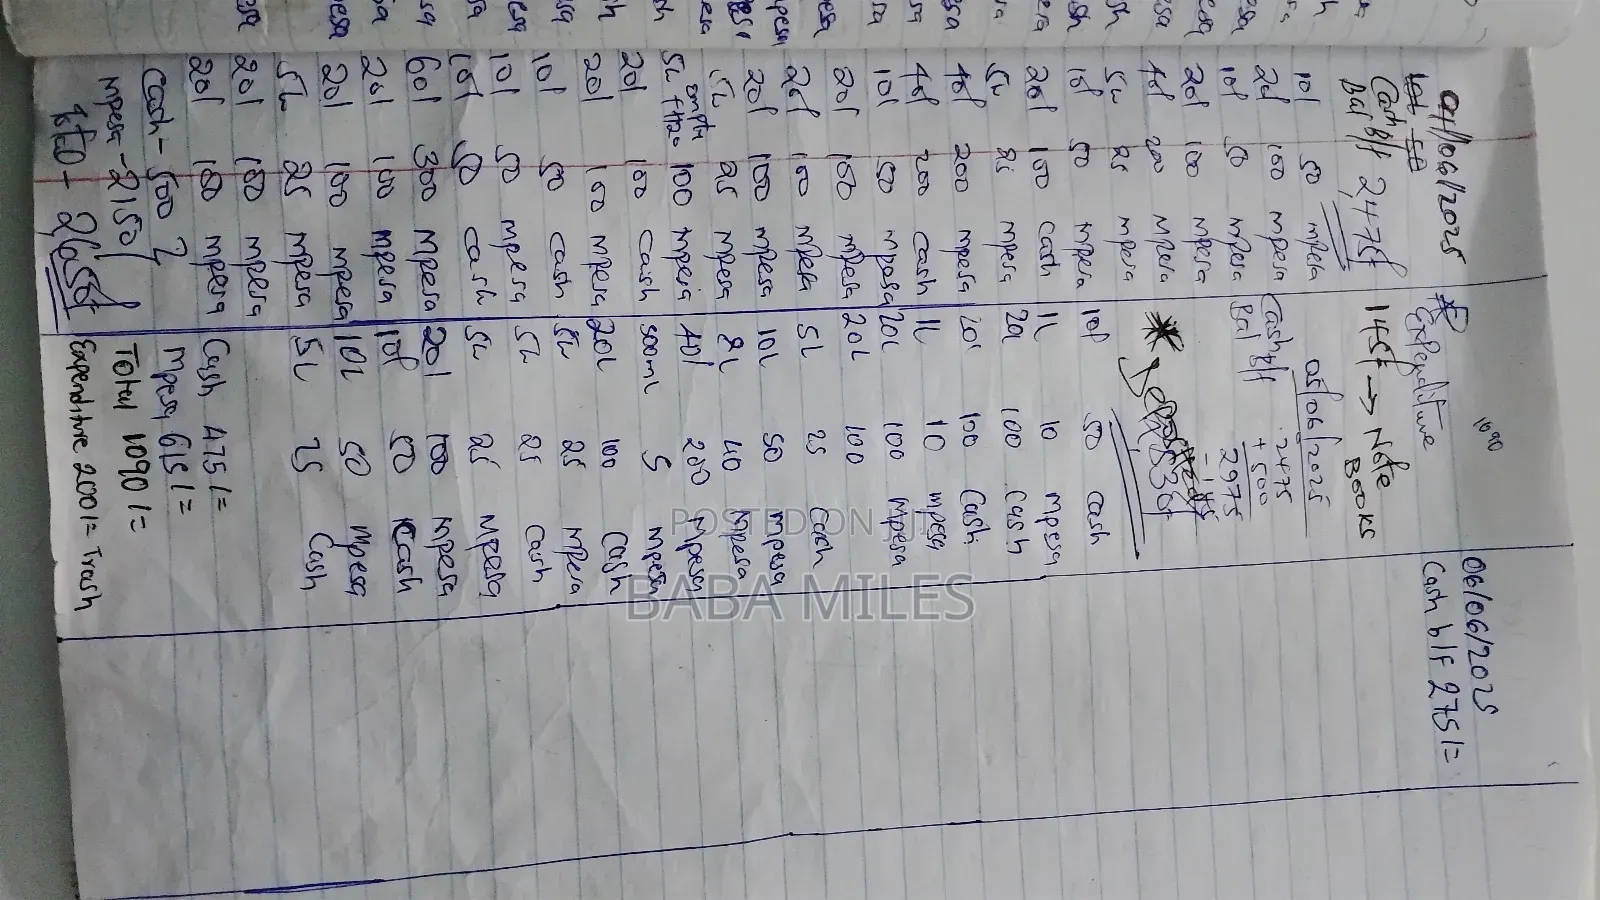 04/06/2025
Cash B/f 2,475/
Bal
10l 50 mpesa
20l 100 mpesa
10l 50 mpesa
20l 100 mpesa
40l 200 mpesa
5L 25 mpesa
10l 50 mpesa
20l 100 cash
5L 25 mpesa
40l 200 mpesa
40l 200 cash
10l 50 mpesa
20l 100 mpesa
20l 100 mpesa
20l 100 mpesa
5L 25 mpesa
5L empty + H20 100 mpesa
20l 100 cash
20l 100 mpesa
10l 50 cash
10l 50 mpesa
10l 50 cash
60l 300 mpesa
20l 100 mpesa
20l 100 mpesa
5L 25 mpesa
20l 100 mpesa
20l 100 mpesa
Cash - 500
mpesa - 2150/
2,650/
1090
Expenditure
145/ → Note
Books
05/06/2025
Cash B/f 2475
Bal B/f + 500
2975
- 145
10l 50 cash
1L 10 mpesa
20l 100 Cash
20L 100 Cash
1L 10 mpesa
20L 100 Mpesa
20L 100
5L 25 Cash
10L 50 mpesa
8L 40 Mpesa
40l 200 Mpesa
500mL 5 mpesa
20L 100 Cash
5L 25 Mpesa
5L 25 Cash
5L 25 Mpesa
20l 100 Mpesa
10l 50 Cash
10L 50 Mpesa
5L 25 Cash
Cash 475/=
Mpesa 615/=
Total 1090/=
Expenditure 200/= Trash
06/06/2025
Cash b/f 2751=
POSTED ON JIJI
BABA MILES